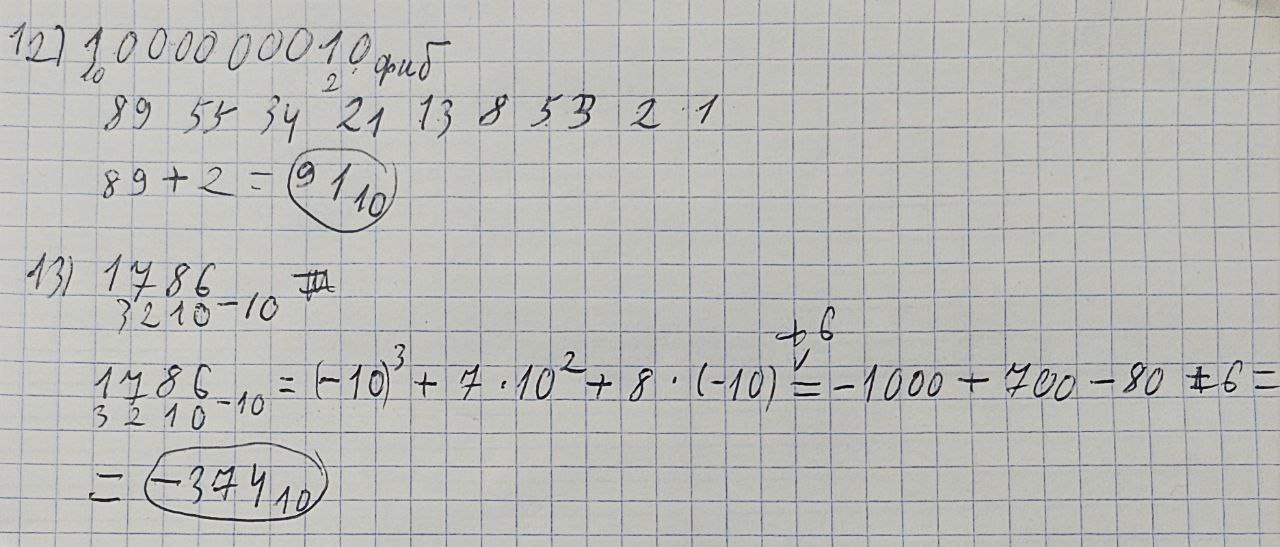 12) 1000000010 фиб
10 2
89 55 34 21 13 8 5 3 2 1
89 + 2 = 91₁₀
13) 1786₋₁₀
3 2 1 0
+ 6
1786₋₁₀ = (-10)³ + 7 · 10² + 8 · (-10) = -1000 + 700 - 80 + 6 =
3 2 1 0
= -374₁₀